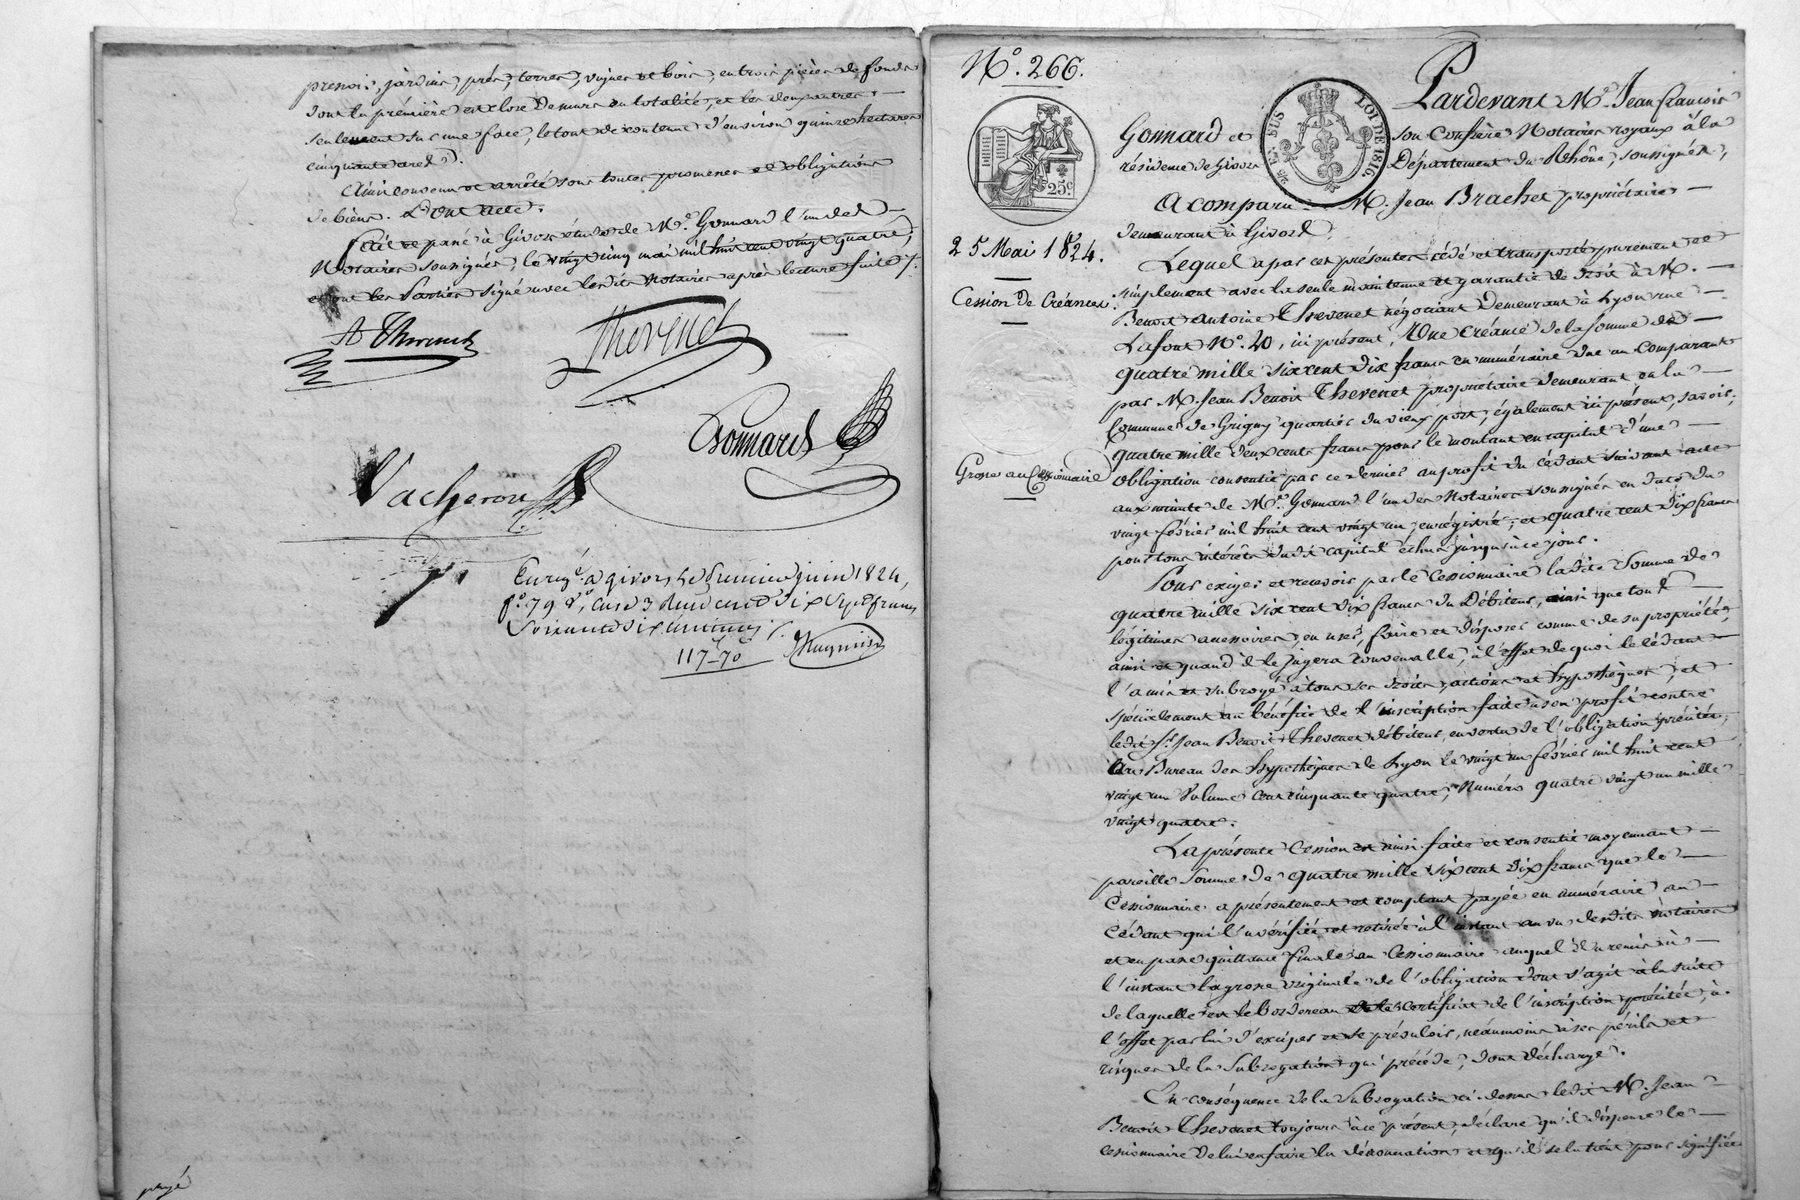 pressoir, jardins, prés, terres, vignes et bois, en trois pièces de fonds
dont la première est close de murs en totalité, et les deux autres
seulement sur une face, le tout de contenue d'environ quinze hectares
cinquante ares.
Ainsi convenu et arrêté sous toutes promesses et obligations
de biens. Dont acte.
Fait et passé à Givors étude de Me. Gonnard l'un des
Notaires soussignés, le vingt cinq mai mil huit cent vingt quatre,
et ont les Parties signé avec lesdits Notaires après lecture faite.
A Thevenet
Thevenet
Gonnard
Vacheron
Enregé. à givors le premier juin 1824,
fo. 79 Vo. case 3 Reçu cent dix sept francs
soixante dix centimes
117-70
payé
No. 266.
25c.
LOI DE 1816.
25 Mai 1824.
Cession de Créances.
Grosse au Cessionnaire
Pardevant Me. Jean françois
Gonnard et son Confrère Notaires royaux à la
résidence de Givors Département du Rhône, soussignés,
A comparu M. Jean Brachet propriétaire
demeurant à Givors.
Lequel a par ces présentes cédé et transporté purement et
simplement avec la seule maintenue et garantie de droit à M.
Benoit Antoine Thevenet négociant demeurant à Lyon rue
Lafont No. 20, ici présent, Une Créance de la somme de
quatre mille six cent dix francs en numéraire due au Comparant
par M. Jean Benoit Thevenet propriétaire demeurant en la
Commune de Grigny quartier du vieux port, également ici présent, savoir;
quatre mille deux cents francs pour le montant en capital d'une
obligation consentie par ce dernier au profit du cédant suivant acte
aux minutes de Me. Gonnard l'un des Notaires soussignés en date du
vingt février mil huit cent vingt un, enregistré; et quatre cent dix francs
pour tous intérêts dudit capital échus jusqu'à ce jour.
Pour exiger et recevoir par le Cessionnaire ladite Somme de
quatre mille six cent dix francs du Débiteur, ainsi que tous
légitimes accessoires, en user, faire et disposer comme de sa propriété,
ainsi et quand il le jugera convenable, à l'effet de quoi le cédant
l'a mis et subrogé à tous ses droits, actions et hypothèques, et
spécialement au bénéfice de l'inscription faite à son profit contre
ledit Sr. Jean Benoit Thevenet débiteur, en vertu de l'obligation précitée,
au Bureau des hypothèques de Lyon le vingt un février mil huit cent
vingt un Volume cent cinquante quatre, Numéro quatre vingt un mille
vingt quatre.
La présente Cession est ainsi faite et consentie moyennant
pareille Somme de quatre mille six cent dix francs que le
Cessionnaire a présentement et comptant payée en numéraire au
Cédant qui l'a vérifiée et retirée à l'instant au vu desdits notaires
et en passe quittance finale au Cessionnaire auquel il a remis à
l'instant la grosse originale de l'obligation dont s'agit à la suite
de laquelle est le bordereau et le certificat de l'inscription précitée, à
l'effet par lui d'exciper et se prévaloir, néanmoins à ses périls et
risques de la Subrogation qui précède, dont décharge.
En conséquence de la Subrogation ci dessus ledit M. Jean
Benoit Thevenet toujours à ce présent, déclare qu'il dispense le
cessionnaire de lui en faire la dénonciation et qu'il se la tient pour signifiée